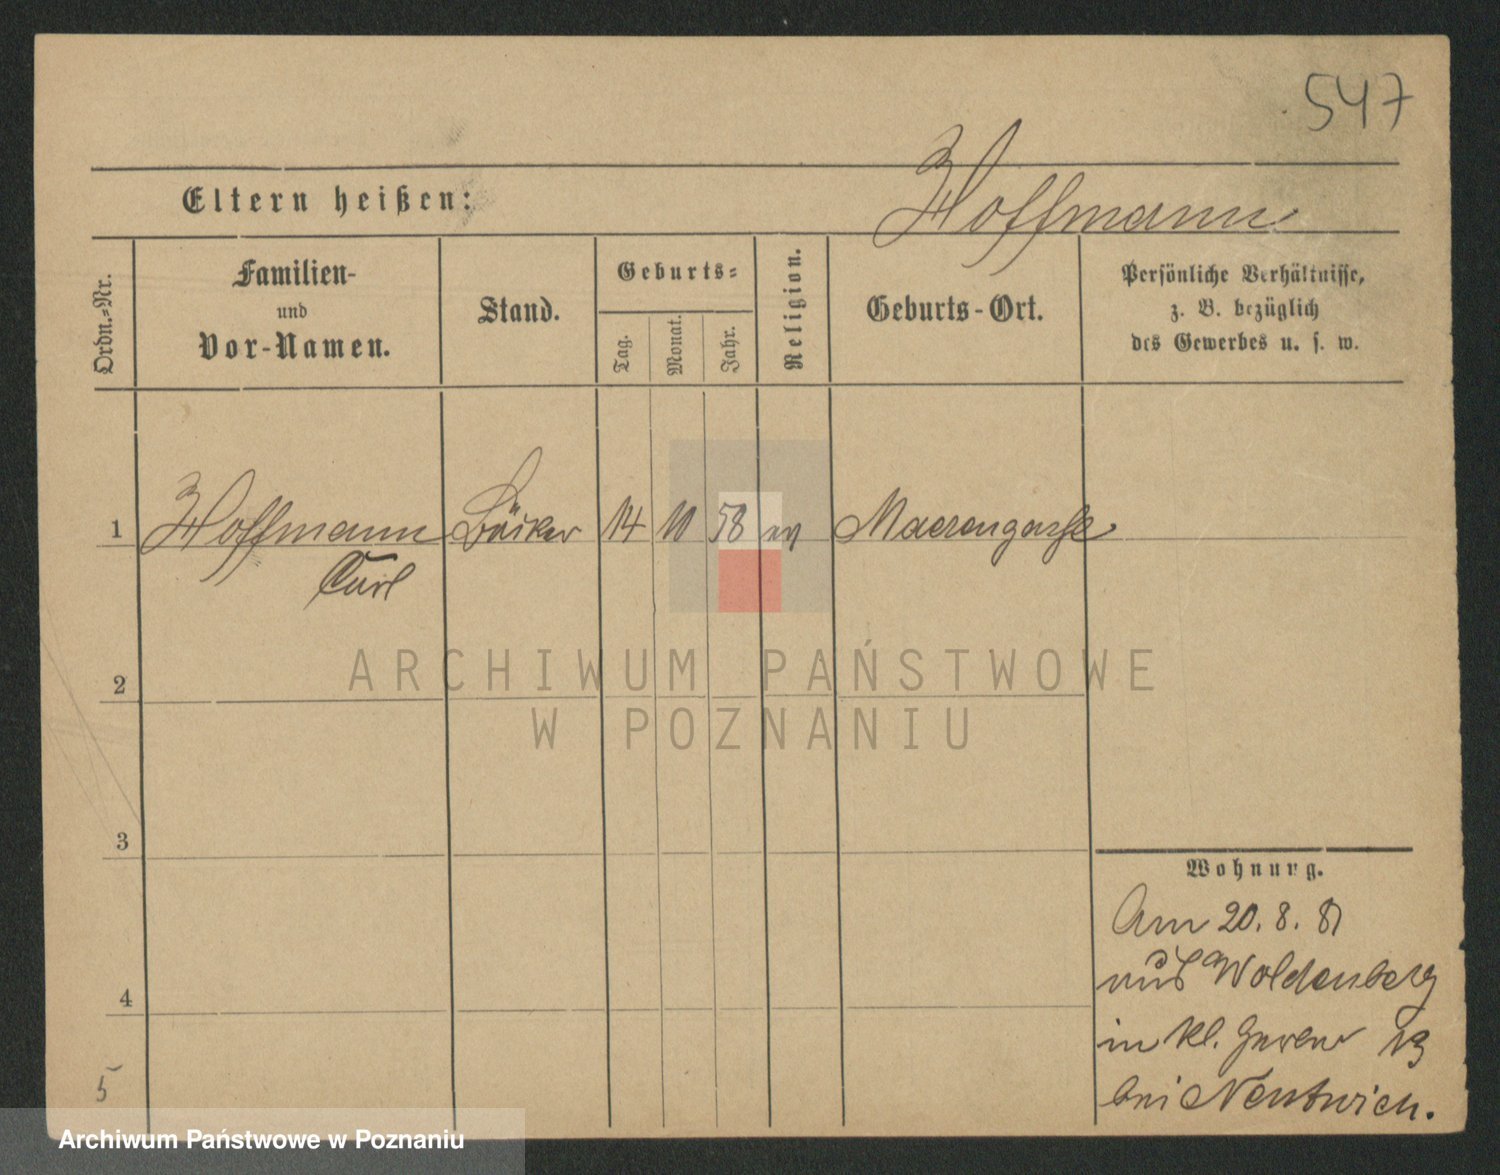 547
Eltern heißen:
Hoffmann
Ordn.-Nr.
Familien-
und
Vor-Namen.
Stand.
Geburts-
Tag.
Monat.
Jahr.
Religion.
Geburts-Ort.
Persönliche Verhältnisse,
z. B. bezüglich
des Gewerbes u. s. w.
1 Hoffmann Bäcker 14 10 58 ev
Carl
2
ARCHIWUM PAŃSTWOWE
W POZNANIU
3
4
5
Wohnung.
Am 20. 8. 81
aus Woldenberg
in kl. Gerber 13
bei Nentwich.
Archiwum Państwowe w Poznaniu